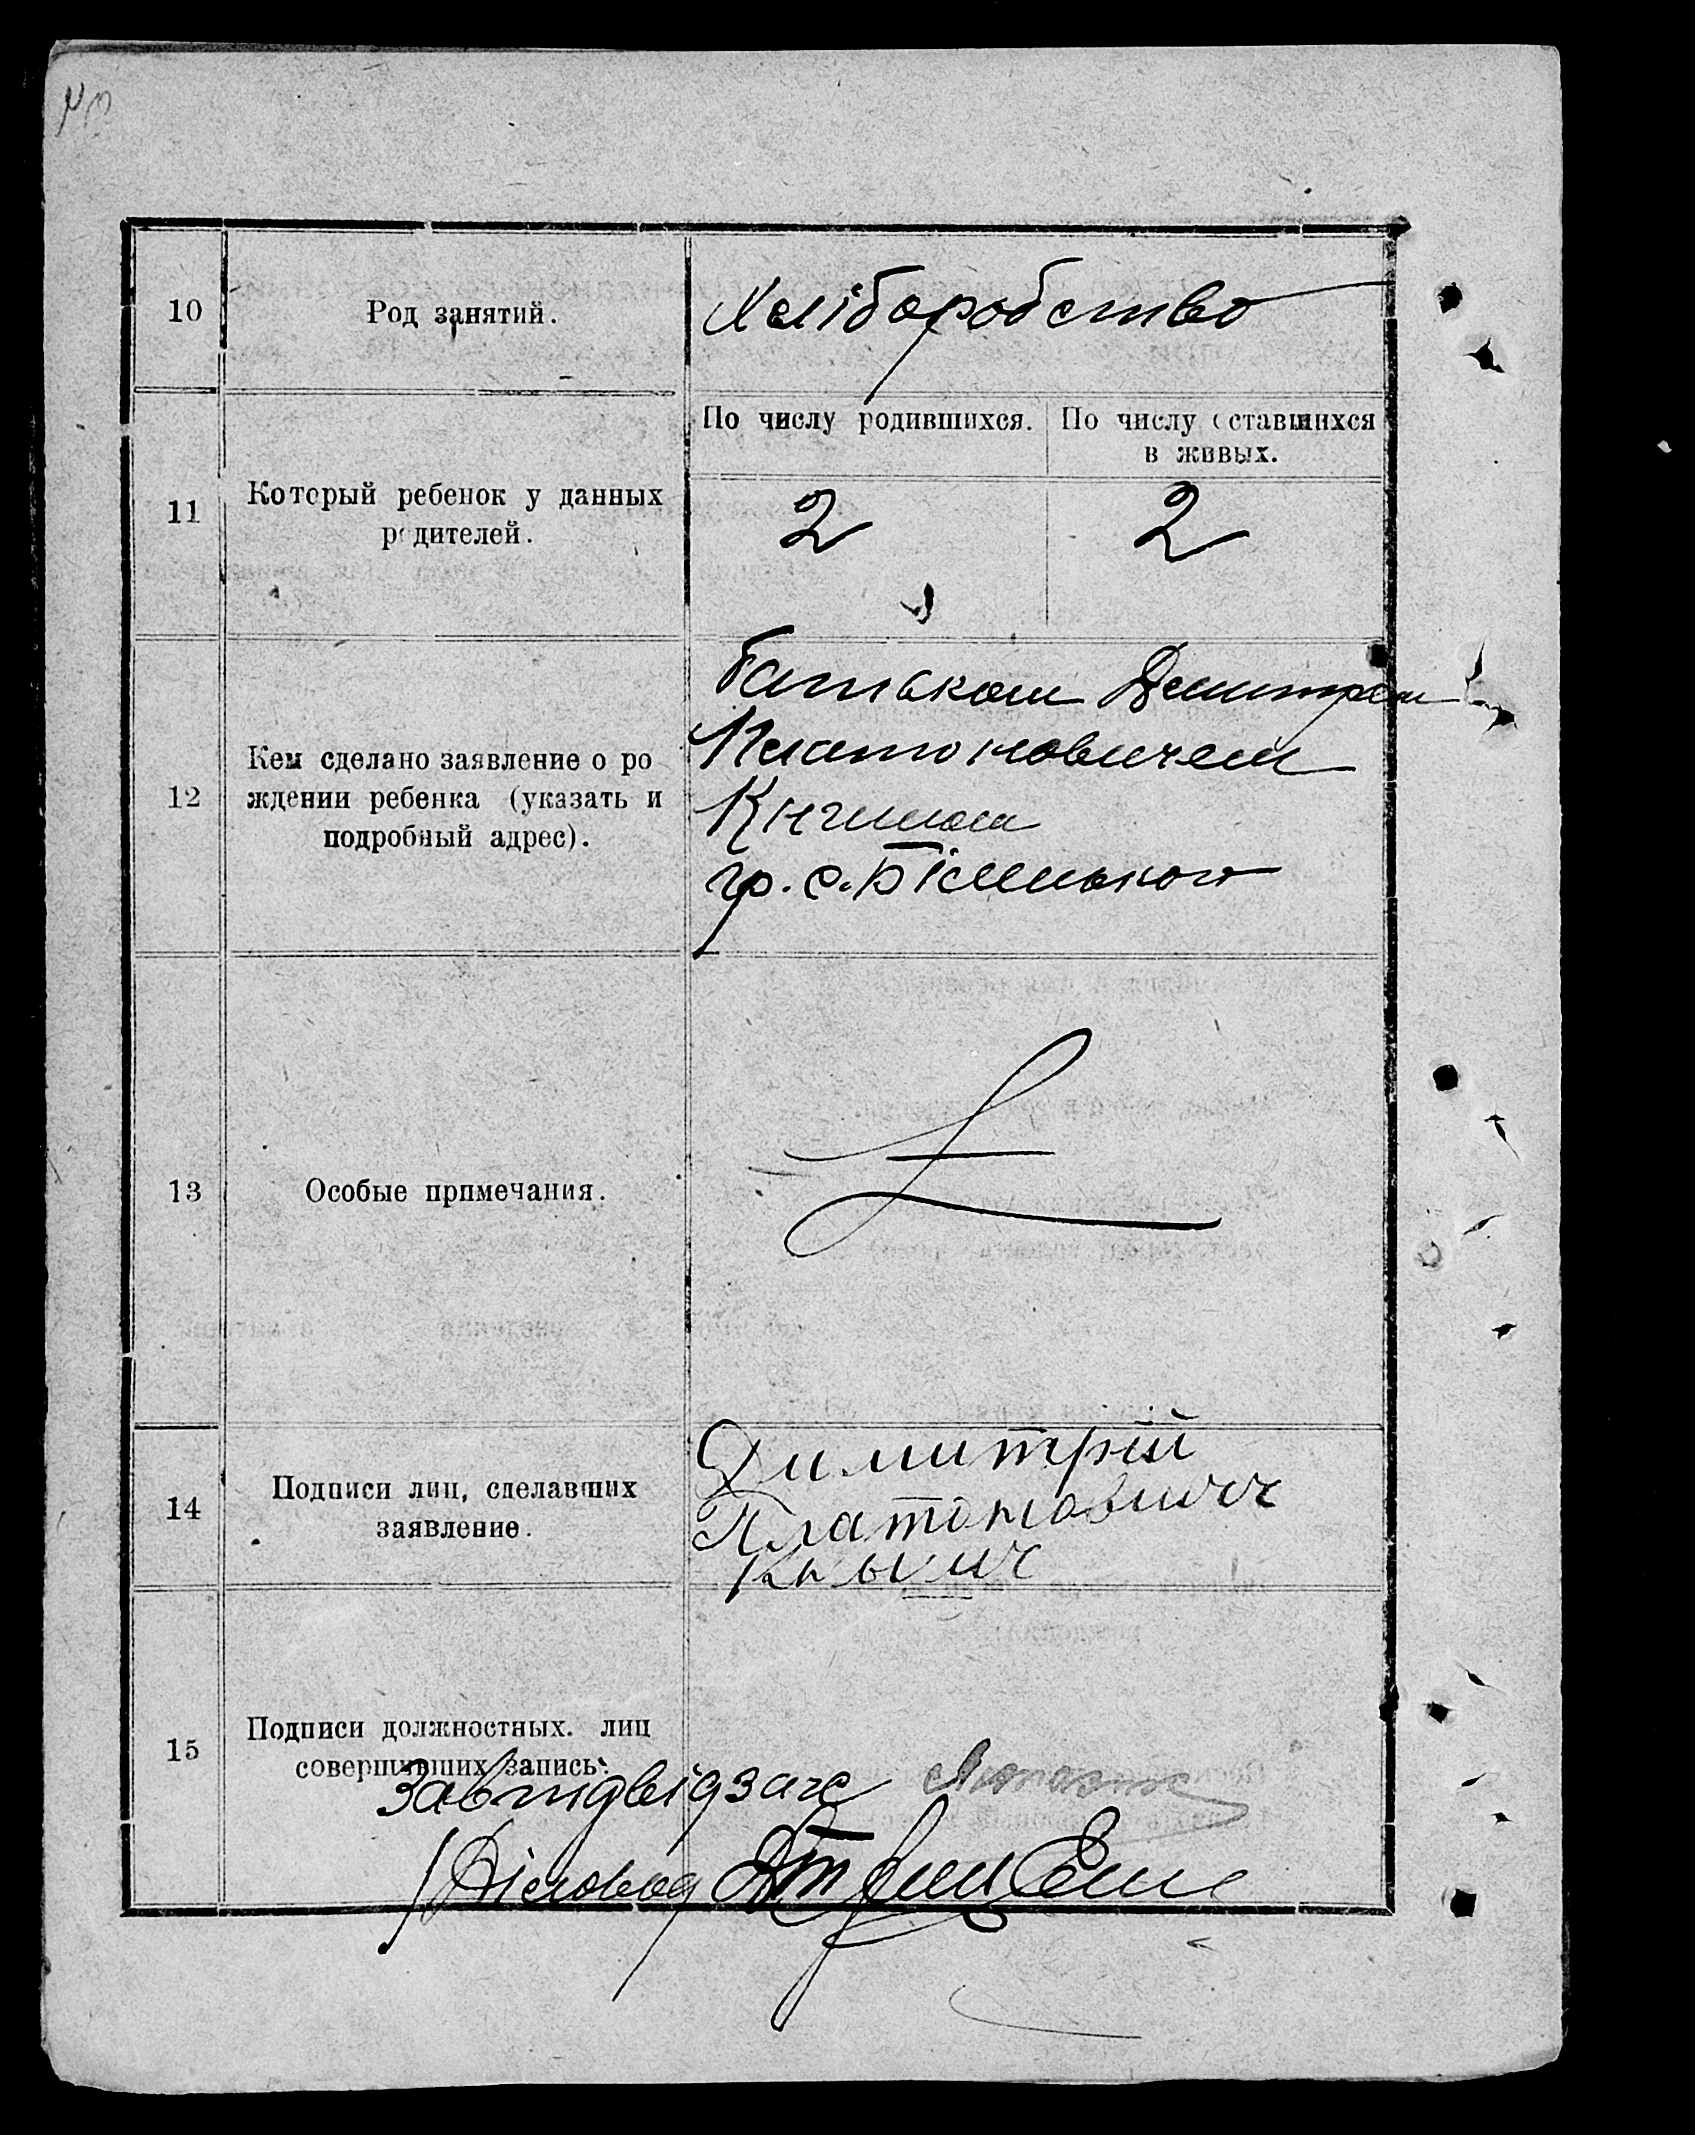 10
Род занятий.
Хліборобство
11
Который ребенок у данных
родителей.
По числу родившихся.
По числу оставшихся
в живых.
2
2
12
Кем сделано заявление о ро
ждении ребенка (указать и
подробный адрес).
батьком Дмитрем
Платоновичем
гр. с.
13
Особые примечания.
14
Подписи лиц, сделавших
заявление.
Димитрій
Платоновичч
15
Подписи должностных. лиц
совершивших запись.
Діловод